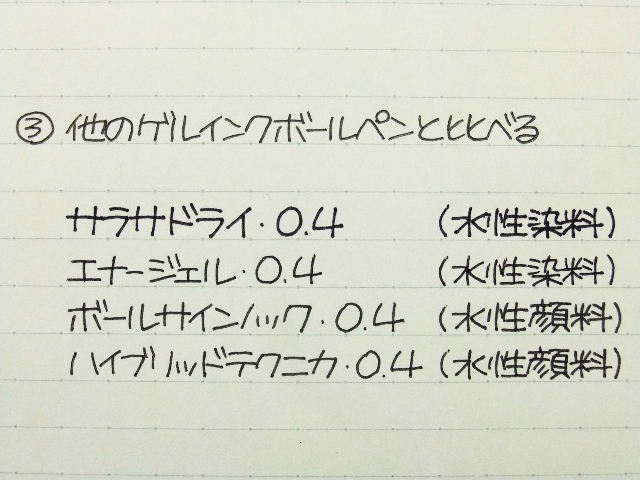 ③ 他のゲルインクボールペンと比べる
サラサドライ・0.4 (水性染料)
エナージェル・0.4 (水性染料)
ボールサインノック・0.4 (水性顔料)
ハイブリッドテクニカ・0.4 (水性顔料)